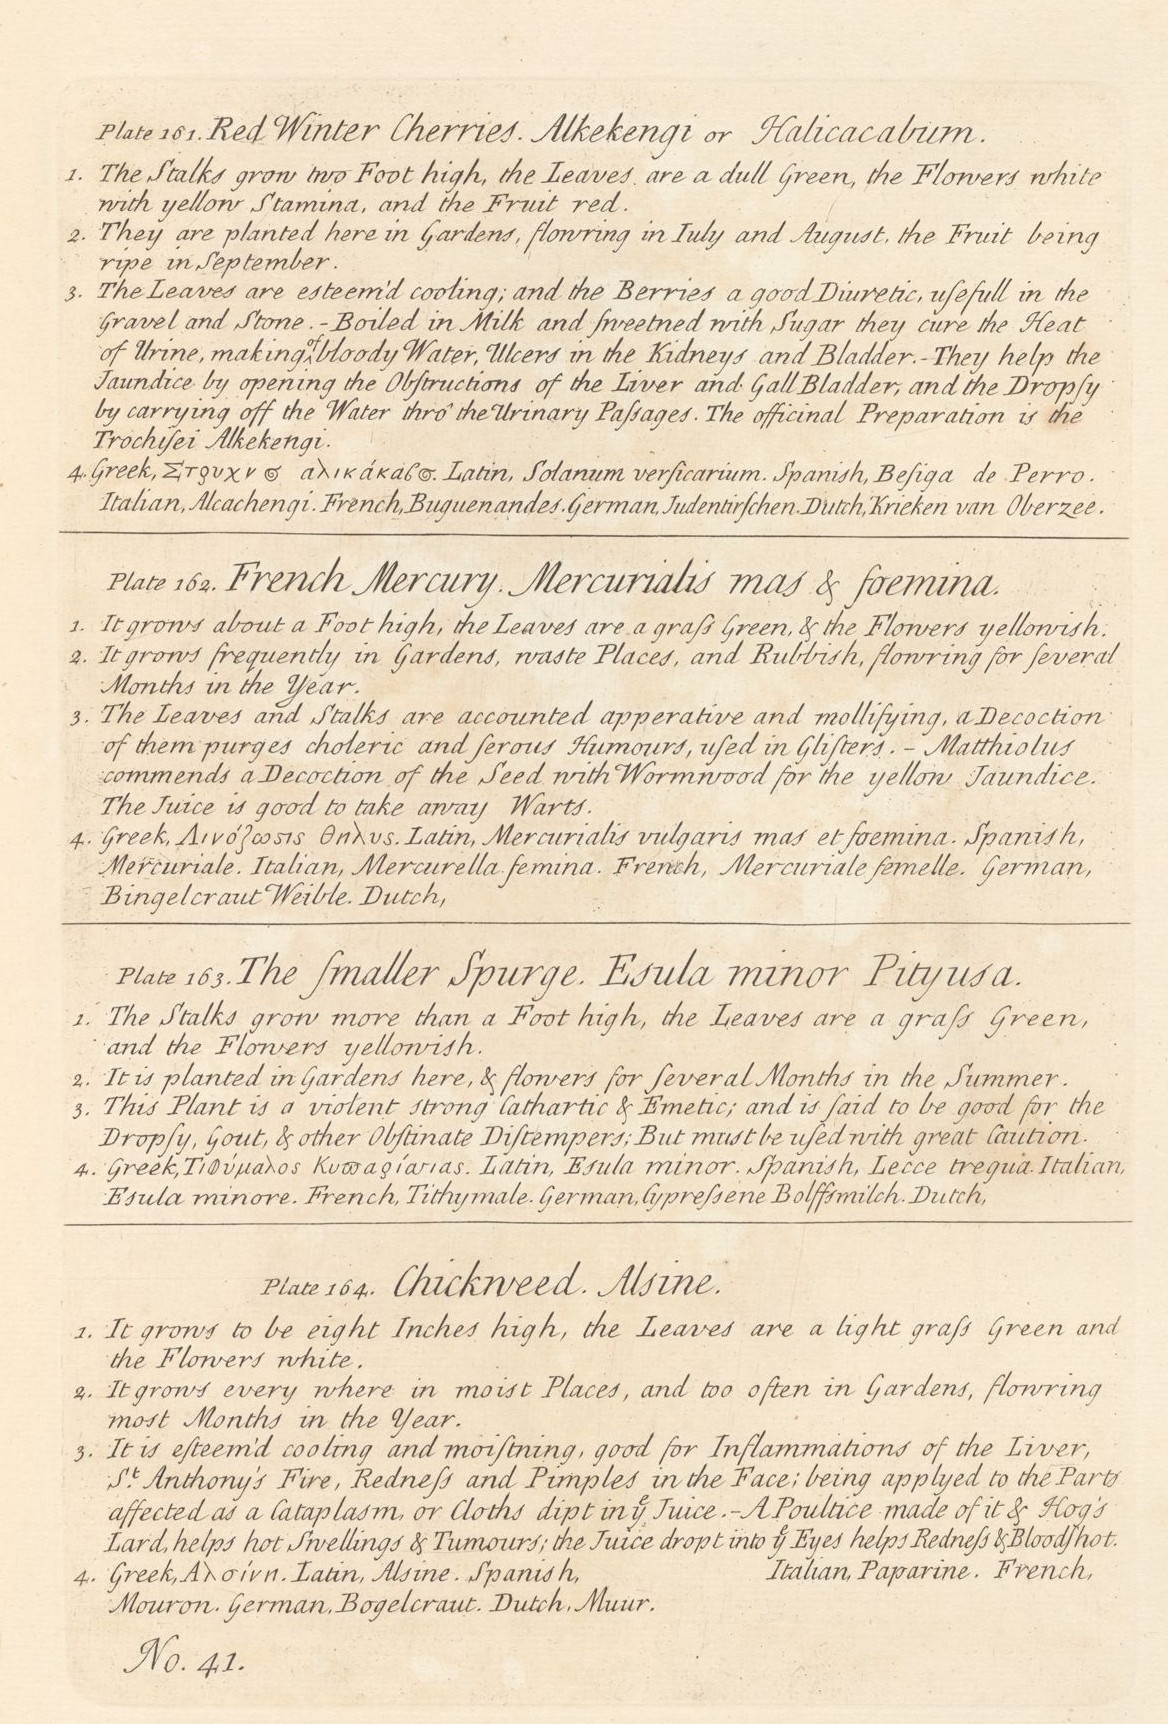 Plate 161. Red Winter Cherries. Alkekengi or Halicacabum.
1. The Stalks grow two Foot high, the Leaves are a dull Green, the Flowers white
with yellow Stamina, and the Fruit red.
2. They are planted here in Gardens, flowring in Iuly and August, the Fruit being
ripe in September.
3. The Leaves are esteem'd cooling; and the Berries a good Diuretic, uſefull in the
Gravel and Stone.-Boiled in Milk and ſweetned with Sugar they cure the Heat
of Urine, making of bloody Water, Ulcers in the Kidneys and Bladder.-They help the
Jaundice by opening the Obſtructions of the Liver and Gall Bladder, and the Dropſy
by carrying off the Water thro' the Urinary Paſsages. The officinal Preparation is the
Trochiſei Alkekengi.
4. Greek, Στρυχνο̃ς ἁλικάκαβος. Latin, Solanum verſicarium. Spanish, Beſiga de Perro.
Italian, Alcachengi. French, Buguenandes. German, Judentirſchen. Dutch, Krieken van Oberzee.
Plate 162. French Mercury. Mercurialis mas & fœmina.
1. It grows about a Foot high, the Leaves are a graſs Green, & the Flowers yellowish.
2. It grows frequently in Gardens, waste Places, and Rubbish, flowring for ſeveral
Months in the Year.
3. The Leaves and Stalks are accounted apperative and mollifying, a Decoction
of them purges choleric and ſerous Humours, uſed in Gliſters. - Matthiolus
commends a Decoction of the Seed with Wormwood for the yellow Jaundice.
The Juice is good to take away Warts.
4. Greek, Λινόζωσις θηλυς. Latin, Mercurialis vulgaris mas et fœmina. Spanish,
Mercuriale. Italian, Mercurella femina. French, Mercuriale femelle. German,
Bingelcraut Weible. Dutch,
Plate 163. The ſmaller Spurge. Esula minor Pityusa.
1. The Stalks grow more than a Foot high, the Leaves are a graſs Green,
and the Flowers yellowish.
2. It is planted in Gardens here, & flowers for ſeveral Months in the Summer.
3. This Plant is a violent strong Cathartic & Emetic; and is ſaid to be good for the
Dropſy, Gout, & other Obſtinate Diſtempers; But must be uſed with great Caution.
4. Greek, Τιθύμαλος Κυπαρίσσιας. Latin, Esula minor. Spanish, Lecce tregua. Italian,
Esula minore. French, Tithymale. German, Cypreſsene Bolffsmilch. Dutch,
Plate 164. Chickweed. Alsine.
1. It grows to be eight Inches high, the Leaves are a light graſs Green and
the Flowers white.
2. It grows every where in moist Places, and too often in Gardens, flowring
most Months in the Year.
3. It is eſteem'd cooling and moiſtning, good for Inflammations of the Liver,
St. Anthony's Fire, Redneſs and Pimples in the Face; being applyed to the Parts
affected as a Cataplasm, or Cloths dipt in ye Juice.-A Poultice made of it & Hog's
Lard, helps hot Swellings & Tumours; the Juice dropt into ye Eyes helps Redneſs & Bloodſhot.
4. Greek, Αλσίνη. Latin, Alsine. Spanish, Italian, Paparine. French,
Mouron. German, Bogelcraut. Dutch, Muur.
No. 41.